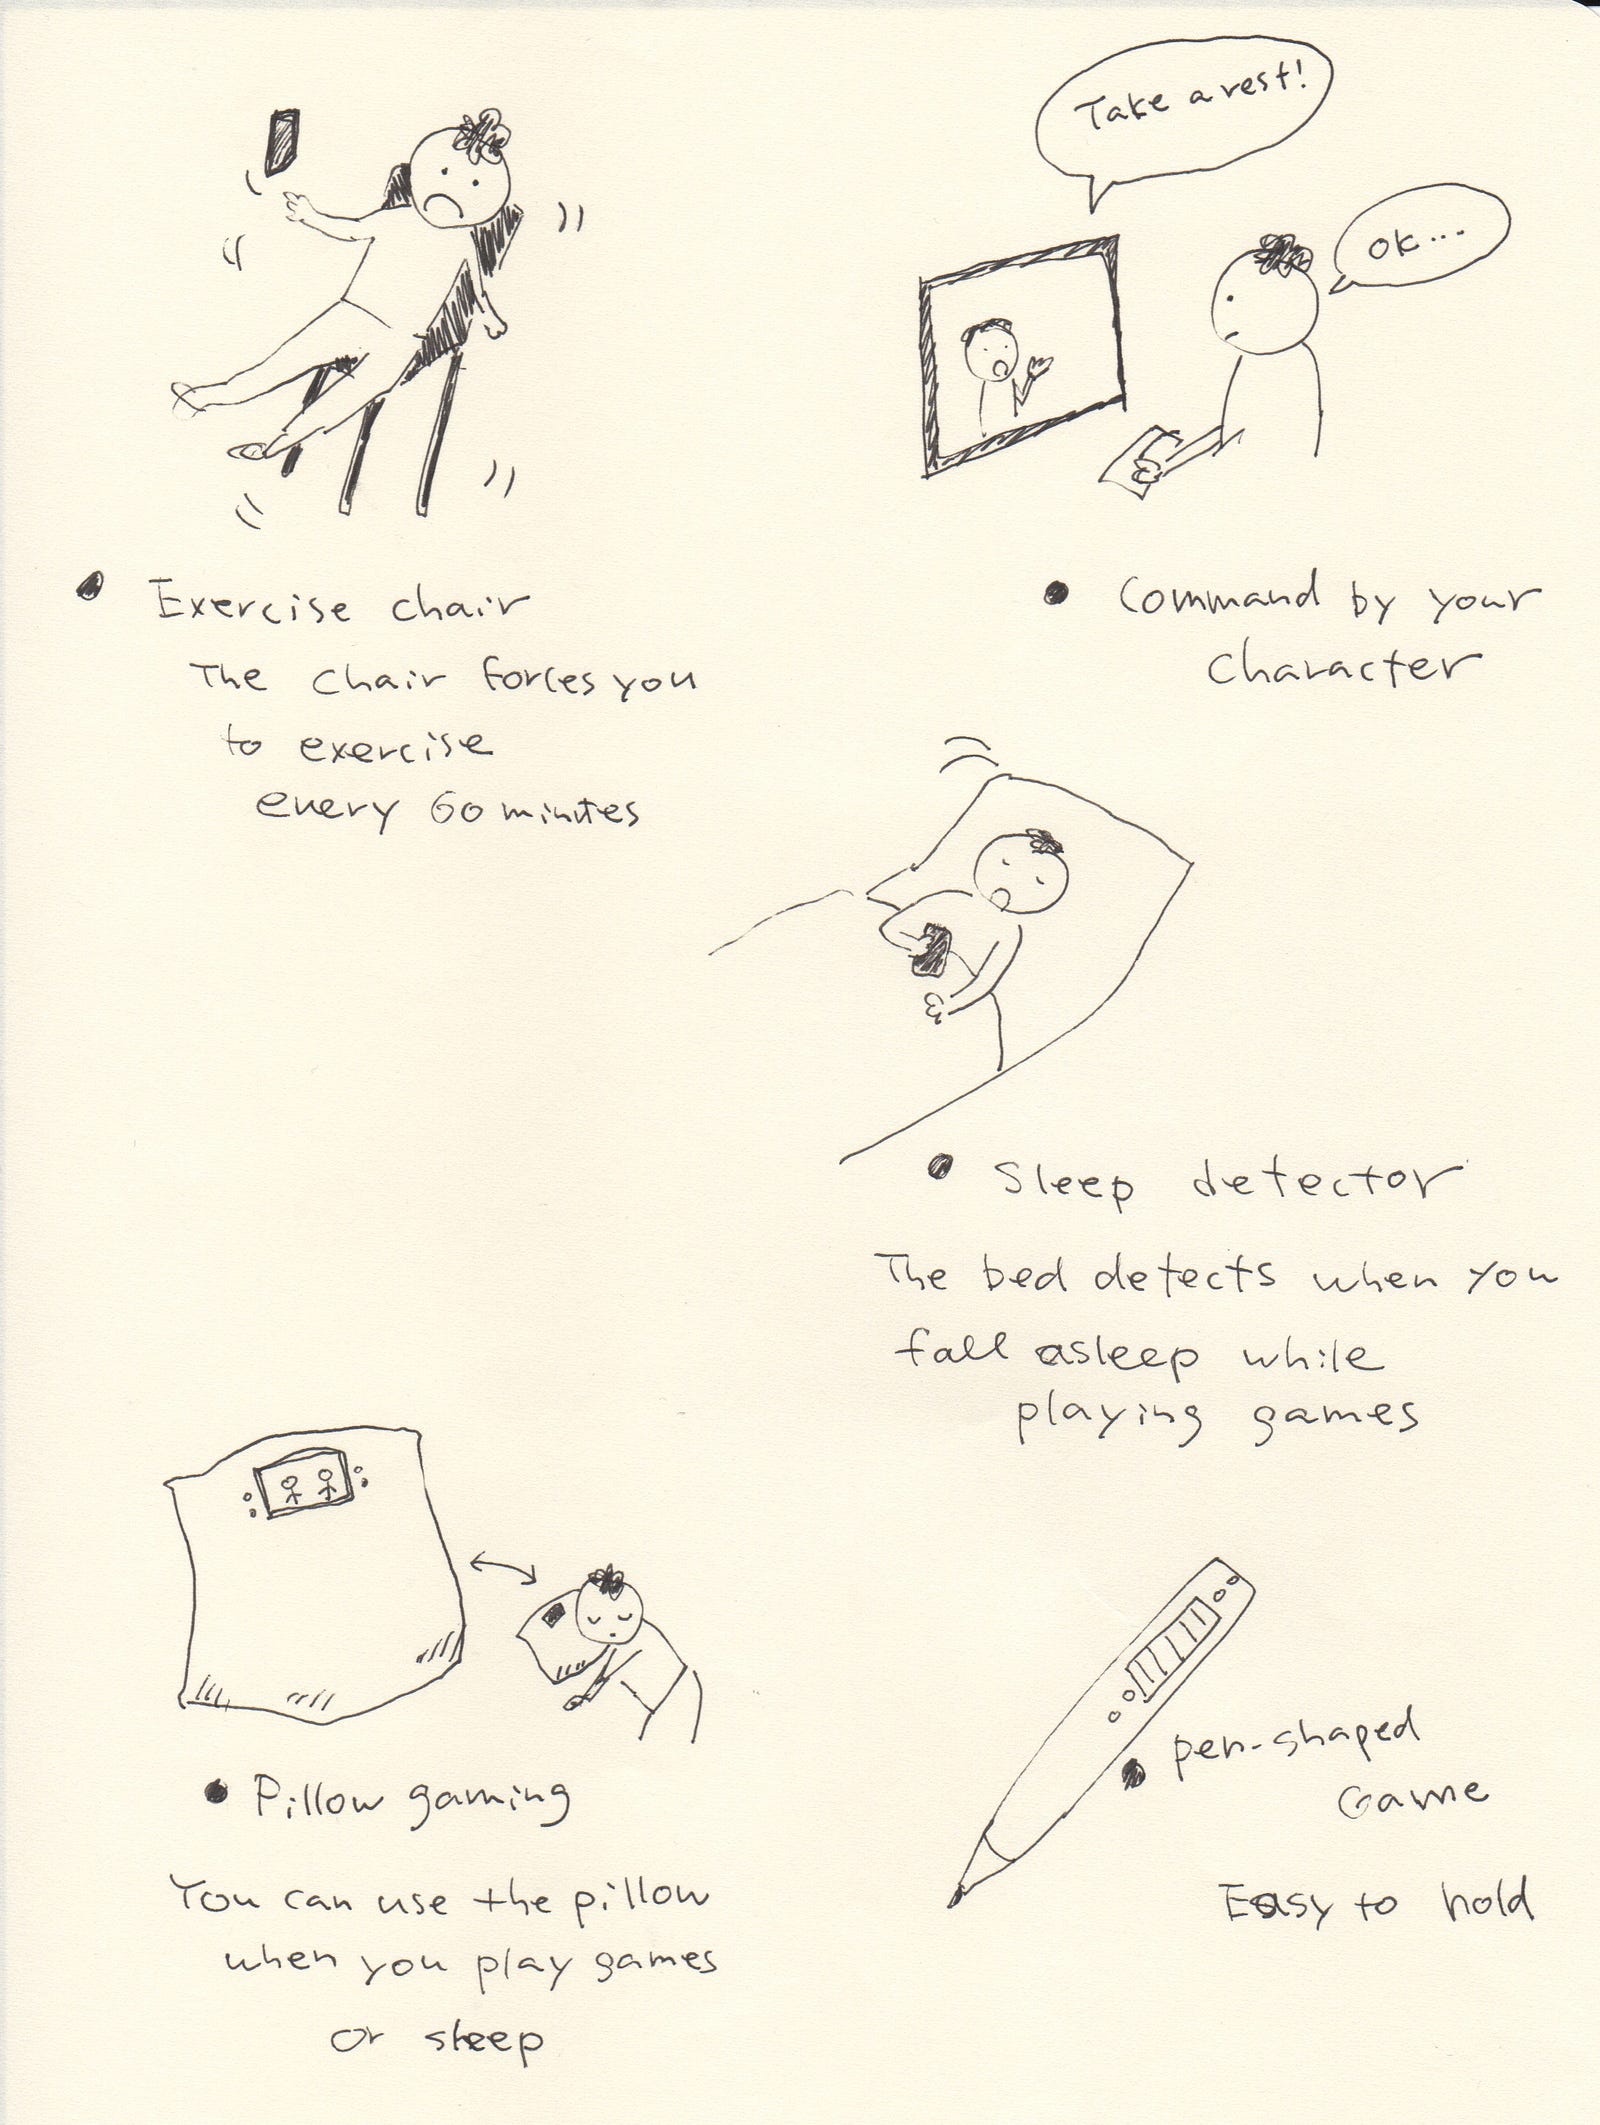 Take a rest!
OK...
• Exercise chair
The chair forces you
to exercise
every 60 minutes
• Command by your
character
• Sleep detector
The bed detects when you
fall asleep while
playing games
• Pillow gaming
You can use the pillow
when you play games
or sleep
• pen-shaped
Game
Easy to hold